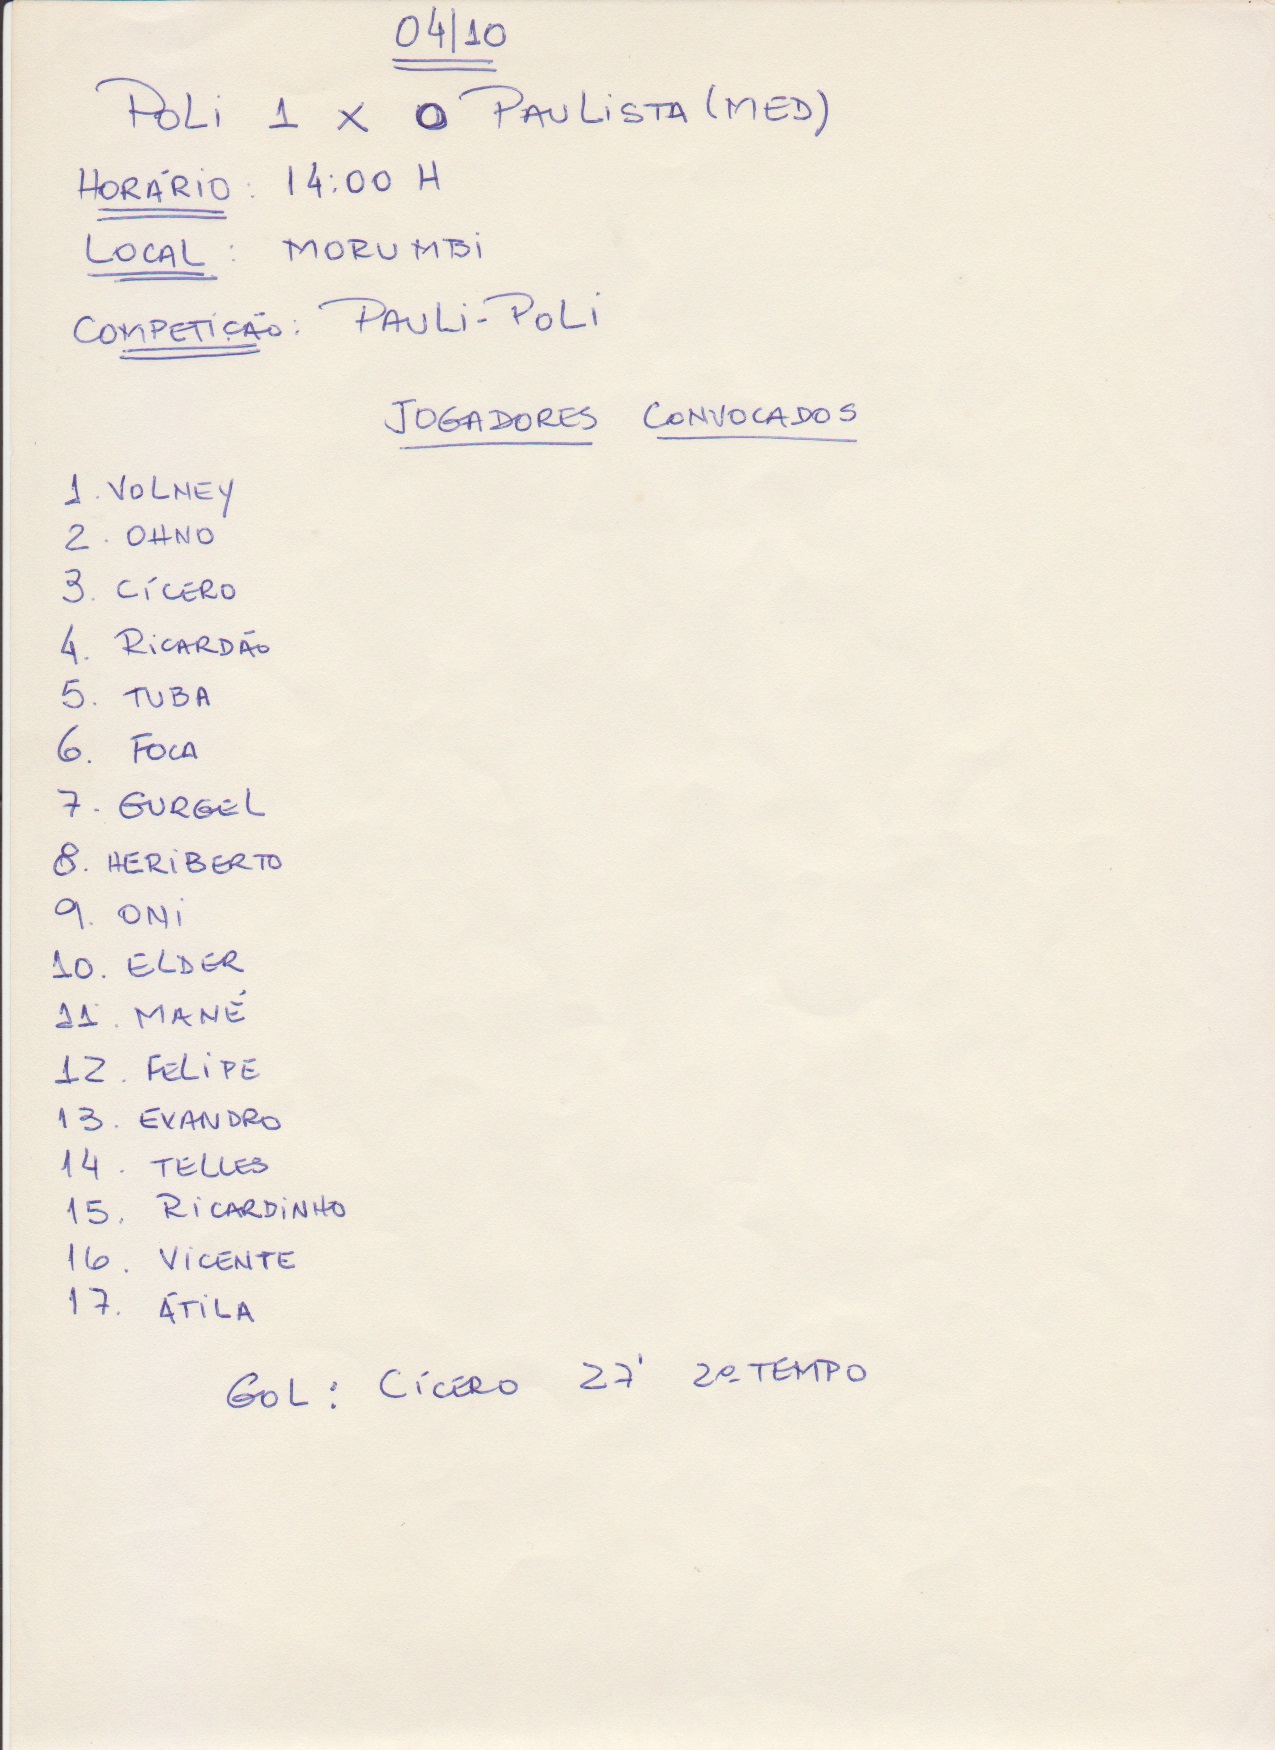 04/10
POLI 1 X 0 PAULISTA (MED)
HORÁRIO: 14:00 H
LOCAL: MORUMBI
COMPETIÇÃO: PAULI-POLI
JOGADORES CONVOCADOS
1. VOLNEY
2. OHNO
3. CÍCERO
4. RICARDÃO
5. TUBA
6. FOCA
7. GURGEL
8. HERIBERTO
9. ONI
10. ELDER
11. MANÉ
12. FELIPE
13. EVANDRO
14. TELLES
15. RICARDINHO
16. VICENTE
17. ÁTILA
GOL: CÍCERO 27' 2º TEMPO